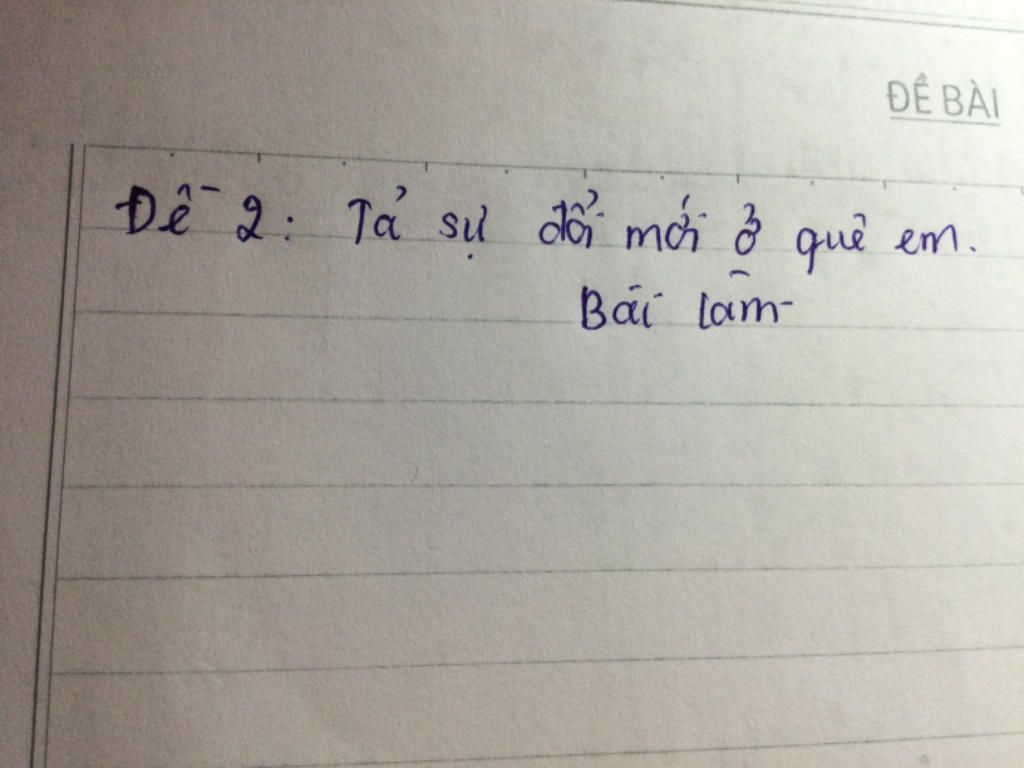 ĐỀ BÀI
Đề 2: Tả sự đổi mới ở quê em.
Bài làm